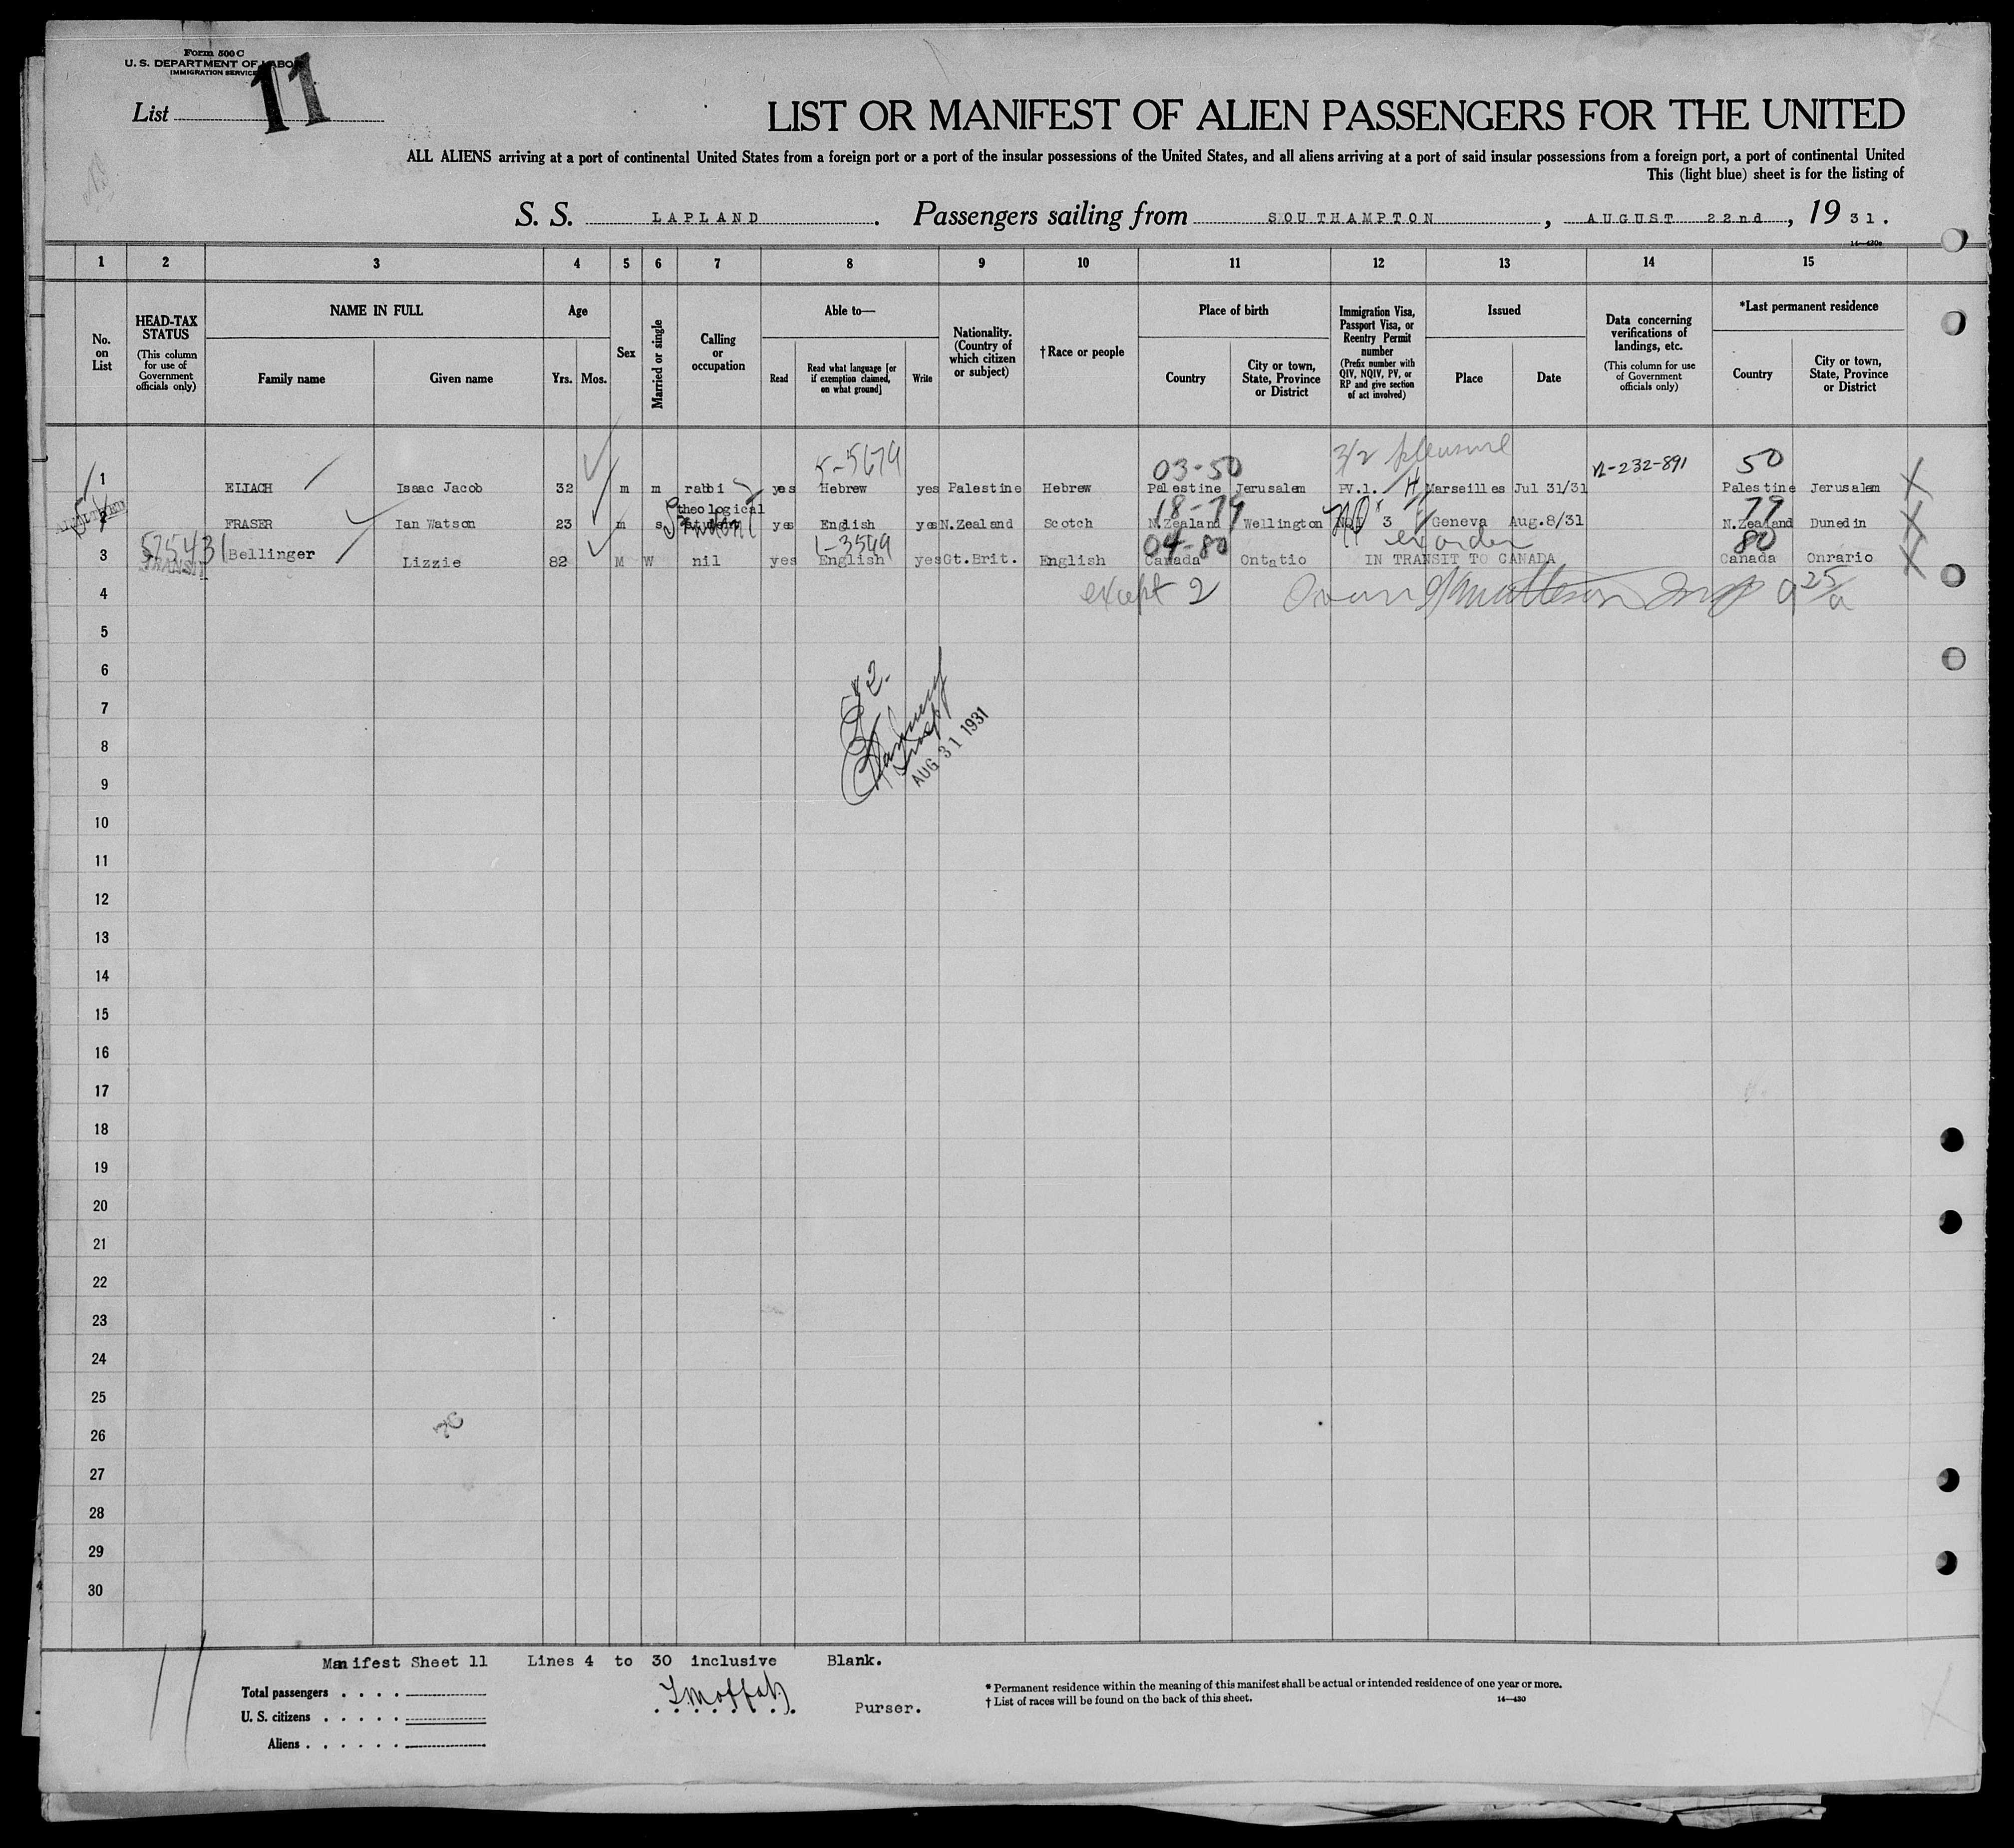 Form 500 C
U. S. DEPARTMENT OF LABOR
IMMIGRATION SERVICE
List 11
LIST OR MANIFEST OF ALIEN PASSENGERS FOR THE UNITED
ALL ALIENS arriving at a port of continental United States from a foreign port or a port of the insular possessions of the United States, and all aliens arriving at a port of said insular possessions from a foreign port, a port of continental United
This (light blue) sheet is for the listing of
S. S. LAPLAND. Passengers sailing from SOUTHAMPTON, AUGUST 22nd, 1931.
14—430c
1 2 3 4 5 6 7 8 9 10 11 12 13 14 15
No. on List
HEAD-TAX STATUS (This column for use of Government officials only)
NAME IN FULL
Family name Given name
Age
Yrs. Mos.
Sex
Married or single
Calling or occupation
Able to—
Read Read what language [or if exemption claimed, on what ground] Write
Nationality. (Country of which citizen or subject)
†Race or people
Place of birth
Country City or town, State, Province or District
Immigration Visa, Passport Visa, or Reentry Permit number (Prefix number with QIV, NQIV, PV, or RP and give section of act involved)
Issued
Place Date
Data concerning verifications of landings, etc. (This column for use of Government officials only)
*Last permanent residence
Country City or town, State, Province or District
5-5679 03-50 3/2 pleasure VL-232-891 50
1 ELIACH Isaac Jacob 32 m m rabbi yes Hebrew yes Palestine Hebrew Palestine Jerusalem PV.1. Marseilles Jul 31/31 Palestine Jerusalem
theological 18-79 79
ADMITTED 2 FRASER Ian Watson 23 m s Student yes English yes N.Zealand Scotch N.Zealand Wellington NQI 3 Geneva Aug.8/31 N.Zealand Dunedin
575431 1-3549 04-80 80
3 TRANSIT Bellinger Lizzie 82 M W nil yes English yes Gt.Brit. English Canada Ontatio IN TRANSIT TO CANADA Canada Onrario
4 except 2
5
6
7
8
AUG 31 1931
9
10
11
12
13
14
15
16
17
18
19
20
21
22
23
24
25
26
27
28
29
30
11
Manifest Sheet 11 Lines 4 to 30 inclusive Blank.
Total passengers
U. S. citizens
Aliens
Moffat
Purser.
* Permanent residence within the meaning of this manifest shall be actual or intended residence of one year or more.
† List of races will be found on the back of this sheet. 14—430